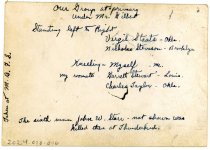 Our Group at primary
under Mr. Willet
Standing left to Right
Virgil Staats - Okla.
Nicholas Stevenson - Brooklyn
Kneeling - Myself - Me.
my mate Garrett Stewart - Louis.
Charles Taylor - Okla.
The sixth man John W. Starr - not shown was
killed then at Thunderbird.
Taken at M.A.F.S.
2024 018 016